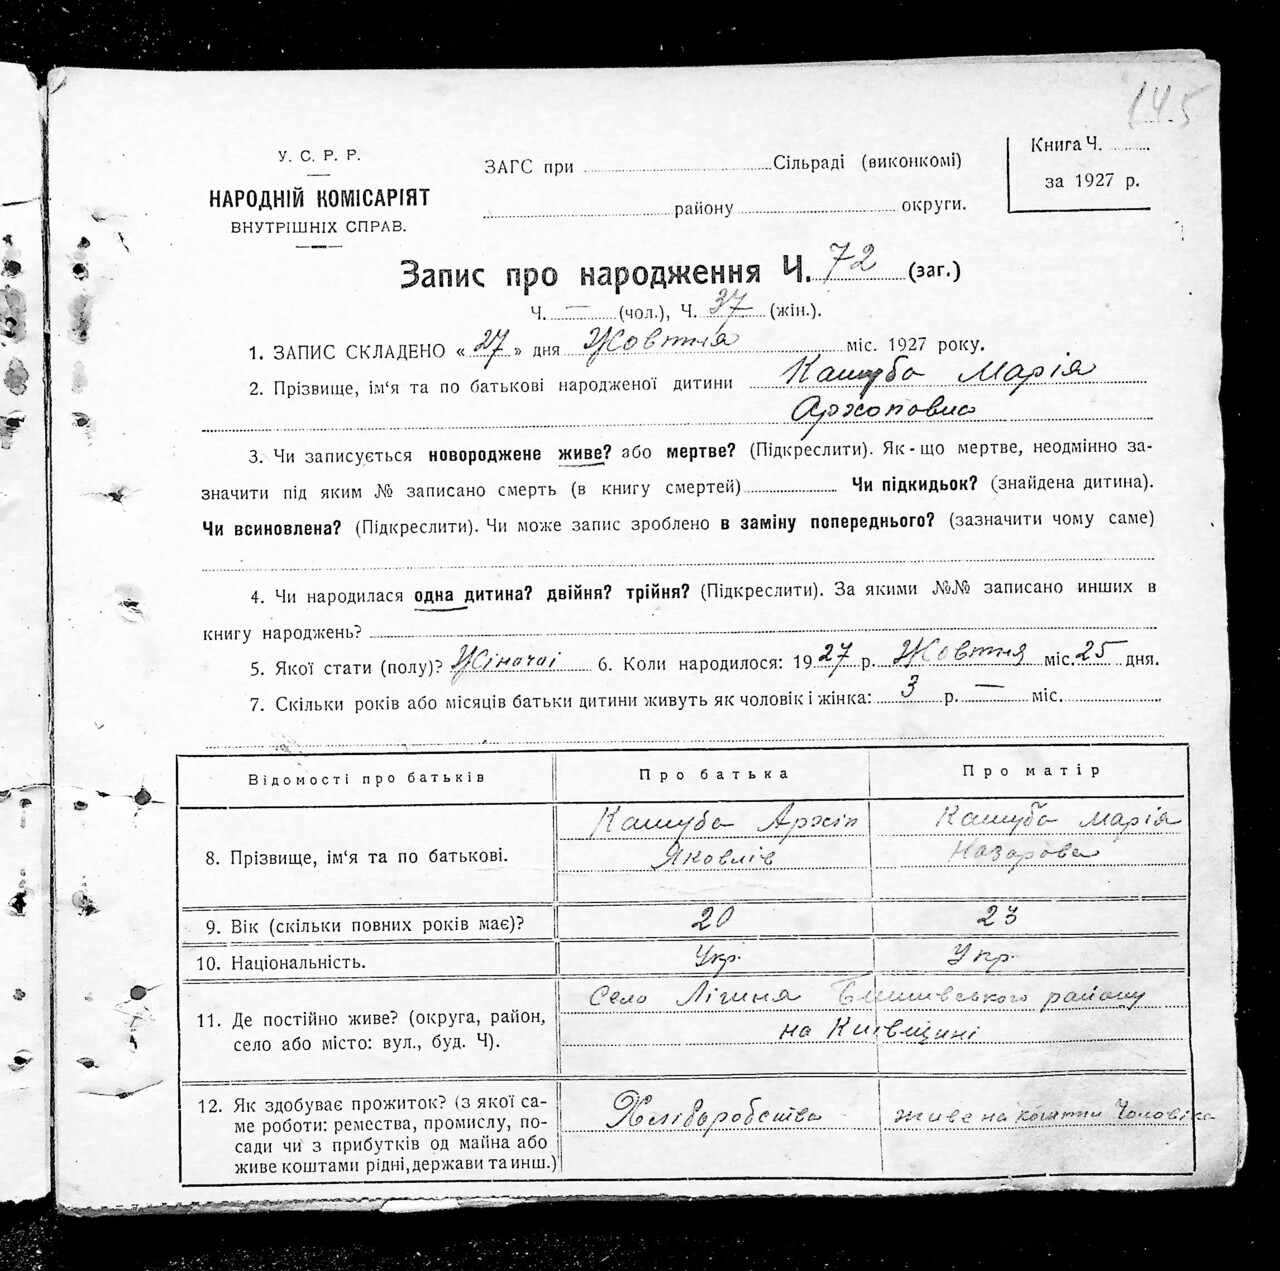 145
У. С. Р. Р.
НАРОДНІЙ КОМІСАРІЯТ
ВНУТРІШНІХ СПРАВ.
ЗАГС при Сільраді (виконкомі)
району округи.
Книга Ч.
за 1927 р.
Запис про народження Ч. 72 (заг.)
Ч. — (чол.), Ч. 37 (жін.).
1. ЗАПИС СКЛАДЕНО « 27 » дня Жовтня міс. 1927 року.
2. Прізвище, ім‘я та по батькові народженої дитини Кашуба Марія
Архоповна
3. Чи записується новороджене живе? або мертве? (Підкреслити). Як-що мертве, неодмінно за-
значити під яким № записано смерть (в книгу смертей) Чи підкидьок? (знайдена дитина).
Чи всиновлена? (Підкреслити). Чи може запис зроблено в заміну попереднього? (зазначити чому саме)
4. Чи народилася одна дитина? двійня? трійня? (Підкреслити). За якими №№ записано инших в
книгу народжень?
5. Якої стати (полу)? Жіночої 6. Коли народилося: 1927 р. Жовтня міс. 25 дня.
7. Скільки років або місяців батьки дитини живуть як чоловік і жінка: 3 р. — міс.
Відомості про батьків Про батька Про матір
8. Прізвище, ім‘я та по батькові. Кашуба Архіп Кашуба Марія
Яковлів Назарова
9. Вік (скільки повних років має)? 20 23
10. Національність. Укр. Укр.
11. Де постійно живе? (округа, район,
село або місто: вул., буд. Ч).
Село району
на Київщині
12. Як здобуває прожиток? (з якої са-
ме роботи: ремества, промислу, по-
сади чи з прибутків од майна або
живе коштами рідні, держави та инш.)
Хліборобство живе на кошти Чоловіка